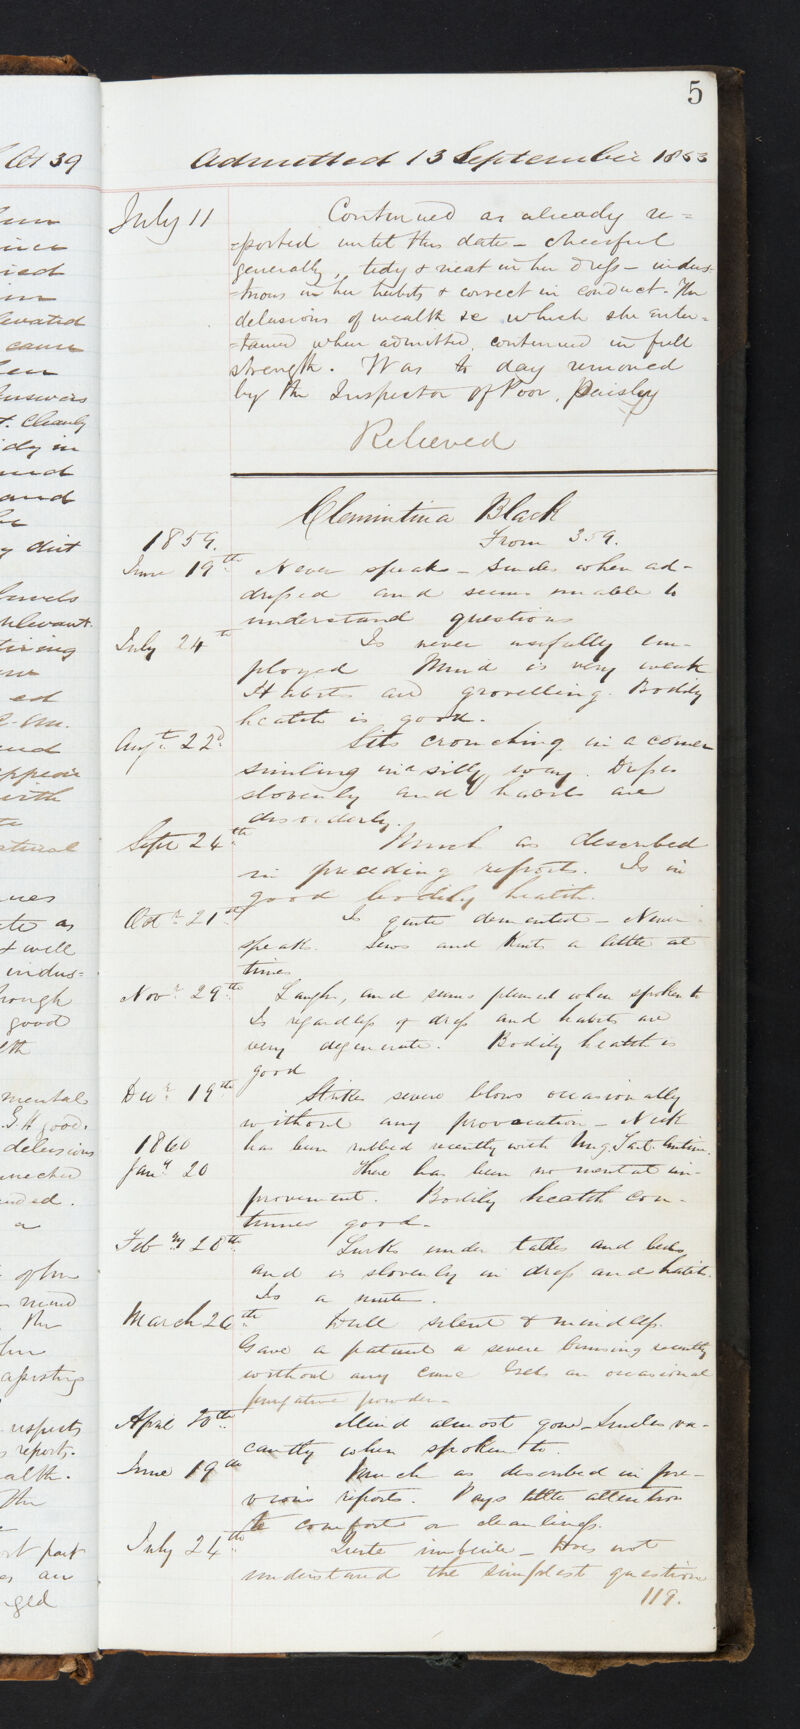 5
Admitted 13 September 1853
July 11 Continued as already re=
=ported until this date – cheerful
generally, tidy & neat in her dress – indus=
=trious in her habits & correct in conduct. The
delusions of wealth &c which she enter=
=tained when admitted, continued in full
strength. Was to day removed
by the Inspector of Poor, Paisley
Relieved
Clemintina Black
1859. From 359.
June 19th Never speaks – Smiles when ad-
dressed and seems unable to
understand questions
July 24th Is never usefully em-
ployed Mind is very weak
Habits are grovelling. Bodily
health is good.
Augt 22d Sits crouching in a corner
smiling in a silly way. Dress
slovenly and habits are
disorderly.
Sept 24th Much as described
in preceding reports. Is in
good bodily health.
Octr 21st Is quite demented – Never
speaks. Sews and Knits a little at
times
Novr 29th Laughs, and seems pleased when spoken to
Is regardless of dress and habits are
very degenerate. Bodily health is
good
Decr 19th Strikes severe blows occasionally
without any provocation – Neck
1860 has been rubbed recently with Ung. Tart.
Jany 20 There has been no mental im-
provement. Bodily health con-
tinues good.
Feby 28th Lurks under tables and beds
and is slovenly in dress and habits.
Is a mute.
March 26th Dull silent & mindless.
Gave a patient a severe bruising recently
without any cause Gets an occasional
purgative powder.
April 20th Mind almost gone – Smiles va-
cantly when spoken to.
June 19th Much as described in pre-
vious reports. Pays little attention
to comforts or cleanliness.
July 24th Quite imbecile – Does not
understand the simplest question
119.